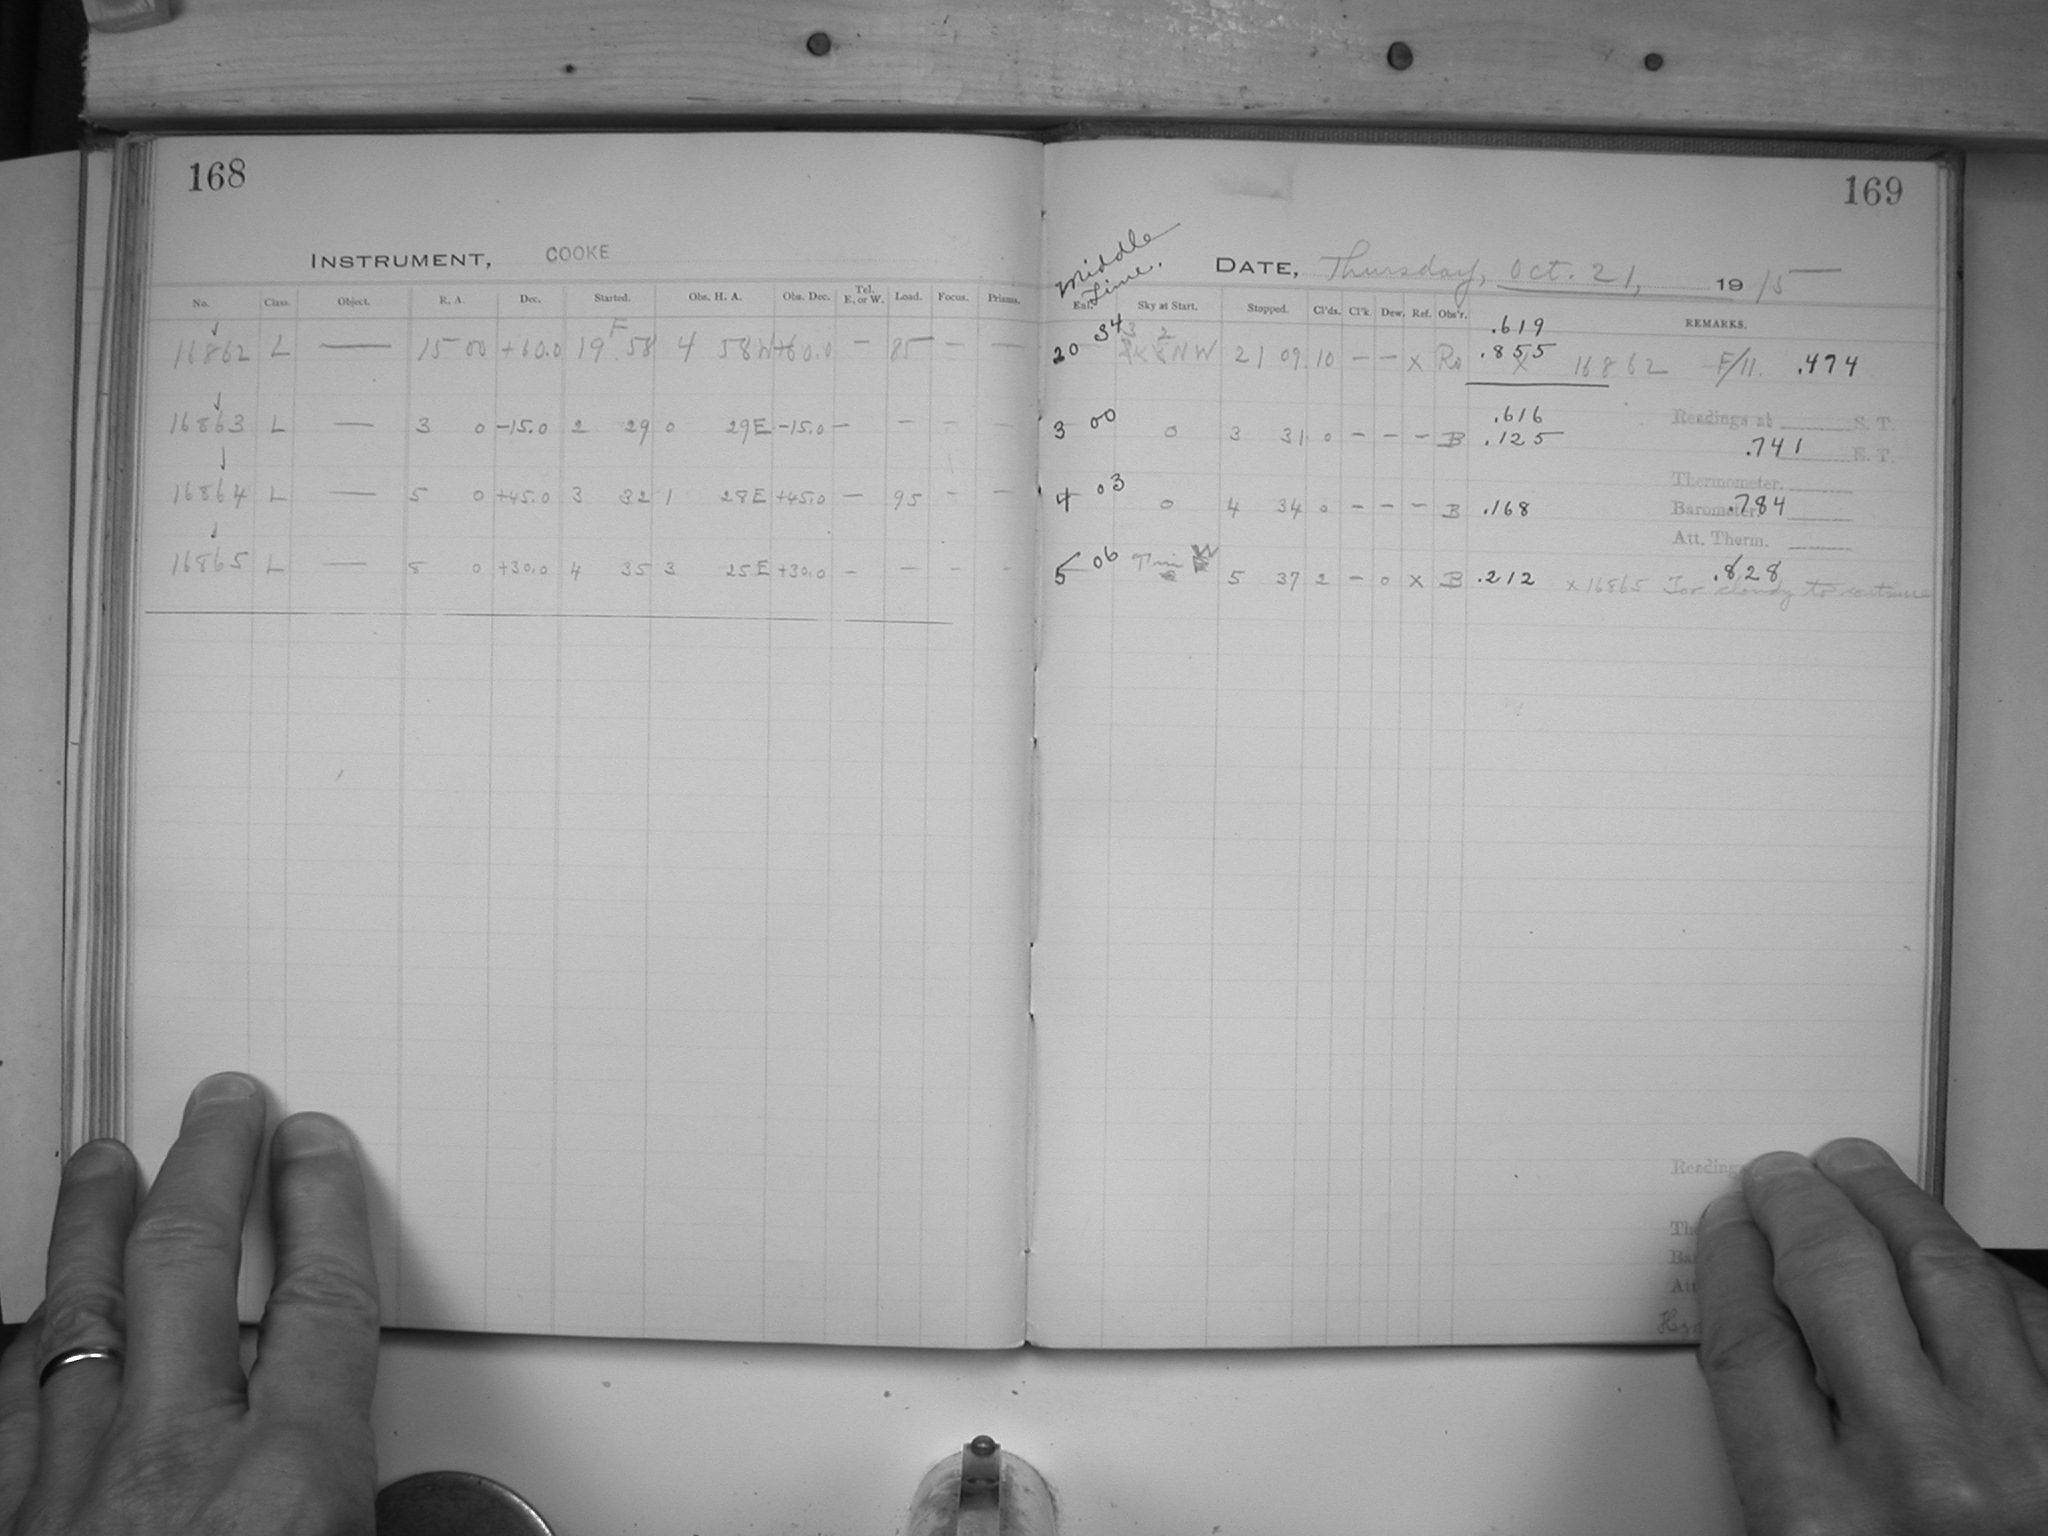 168
INSTRUMENT, COOKE
No. Class. Object. R. A. Dec. Started. Obs. H. A. Obs. Dec. Tel. E. or W. Load. Focus. Prisms.
16862 L — 15 00 +60.0 19 F 58 4 58W +60.0 — 85 — —
16863 L — 3 0 -15.0 2 29 0 29E -15.0 — — — —
16864 L — 5 0 +45.0 3 32 1 28E +45.0 — 95 — —
16865 L — 8 0 +30.0 4 35 3 25E +30.0 — — — —
169
Middle Time.
DATE, Thursday, Oct. 21, 1915
Sky at Start. Stopped. Cl'ds. Cl'k. Dew. Ref. Obs'r. REMARKS.
.619
20 34 3 2 NW 21 09 10 — — x Ro .855 x 16862 F/11. .474
.616
Readings at S. T.
3 00 0 3 31 0 — — — B .125 .741 E. T.
Thermometer.
4 03 0 4 34 0 — — — B .168 Barometer. .784
Att. Therm.
5 06 Thin W 5 37 2 — 0 x B .212 .828
x 16865 Too cloudy to continue
Readings